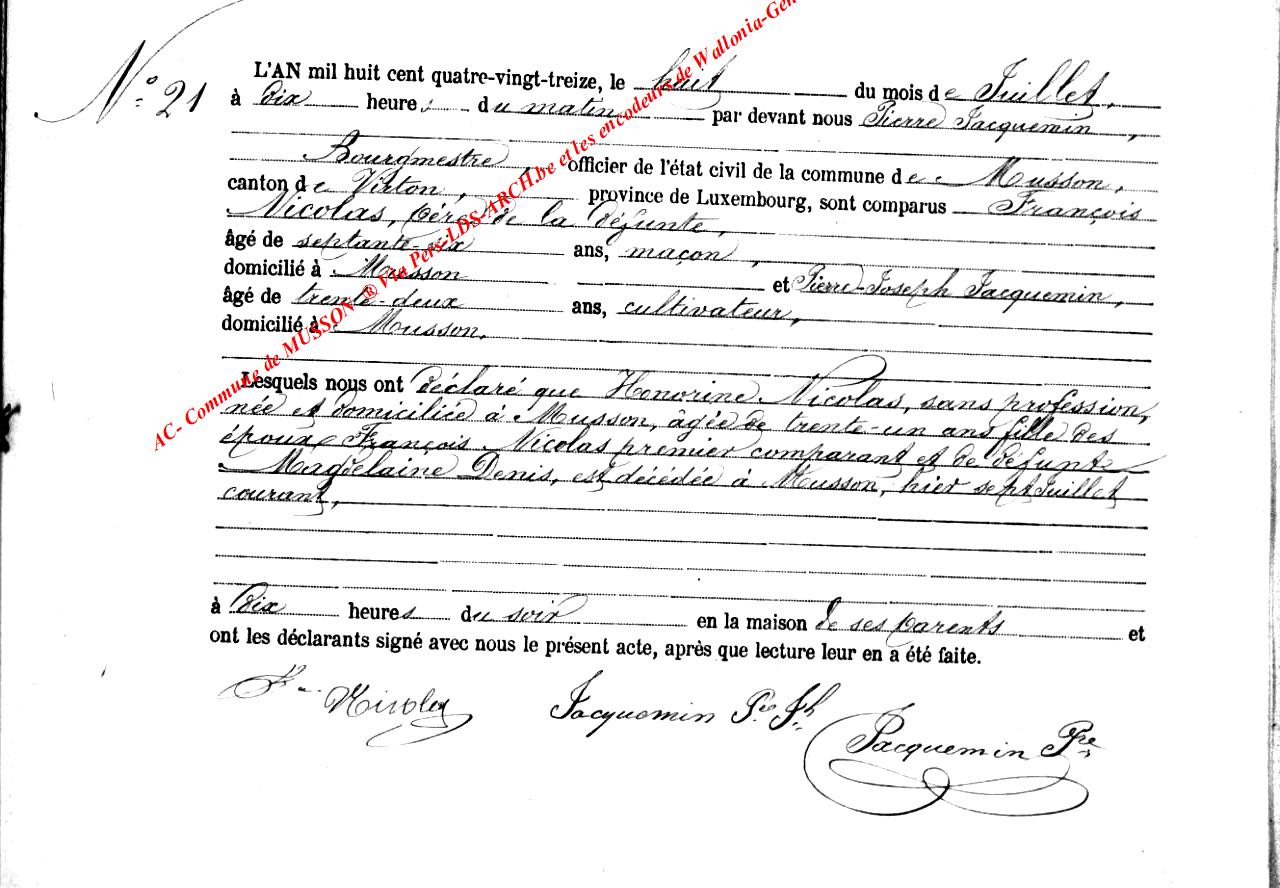 N° 21
L'AN mil huit cent quatre-vingt-treize, le huit du mois de Juillet,
à dix heures du matin par devant nous Pierre Jacquemin,
Bourgmestre, officier de l'état civil de la commune de Musson,
canton de Virton, province de Luxembourg, sont comparus François
Nicolas, père de la défunte,
âgé de septante-six ans, maçon,
domicilié à Musson et Pierre-Joseph Jacquemin,
âgé de trente-deux ans, cultivateur,
domicilié à Musson,
Lesquels nous ont déclaré que Honorine Nicolas, sans profession,
née et domiciliée à Musson, âgée de trente-un ans fille des
époux François Nicolas premier comparant et de défunte
Magdelaine Denis, est décédée à Musson, hier sept Juillet
courant,
à dix heures du soir en la maison de ses parents et
ont les déclarants signé avec nous le présent acte, après que lecture leur en a été faite.
Nicolas Jacquemin Pre Jh
Jacquemin Pre
AC- Commune de MUSSON ® Via Pers-LDS-ARCH.be et les encodeurs de Wallonia-Gen